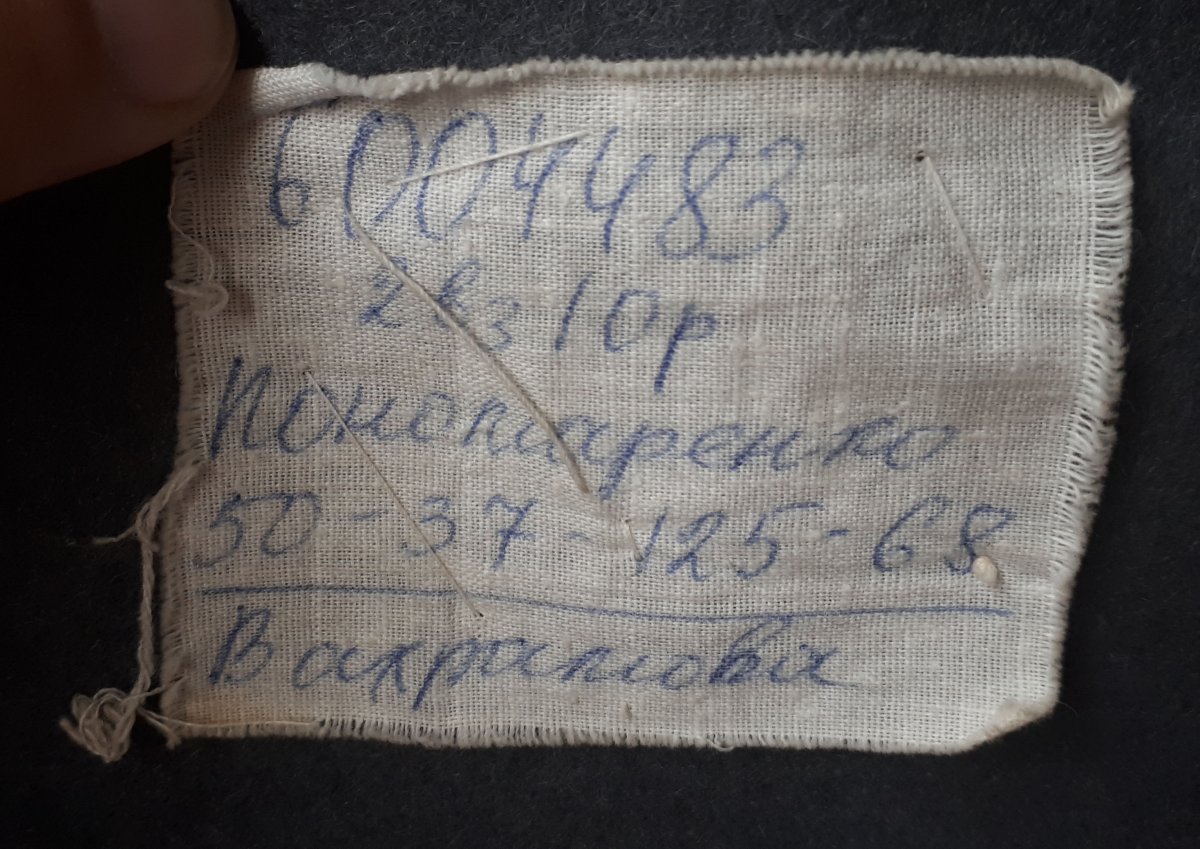 6004483
2 вз 10р
Пономаренко
50-37-125-68
Вахрамова